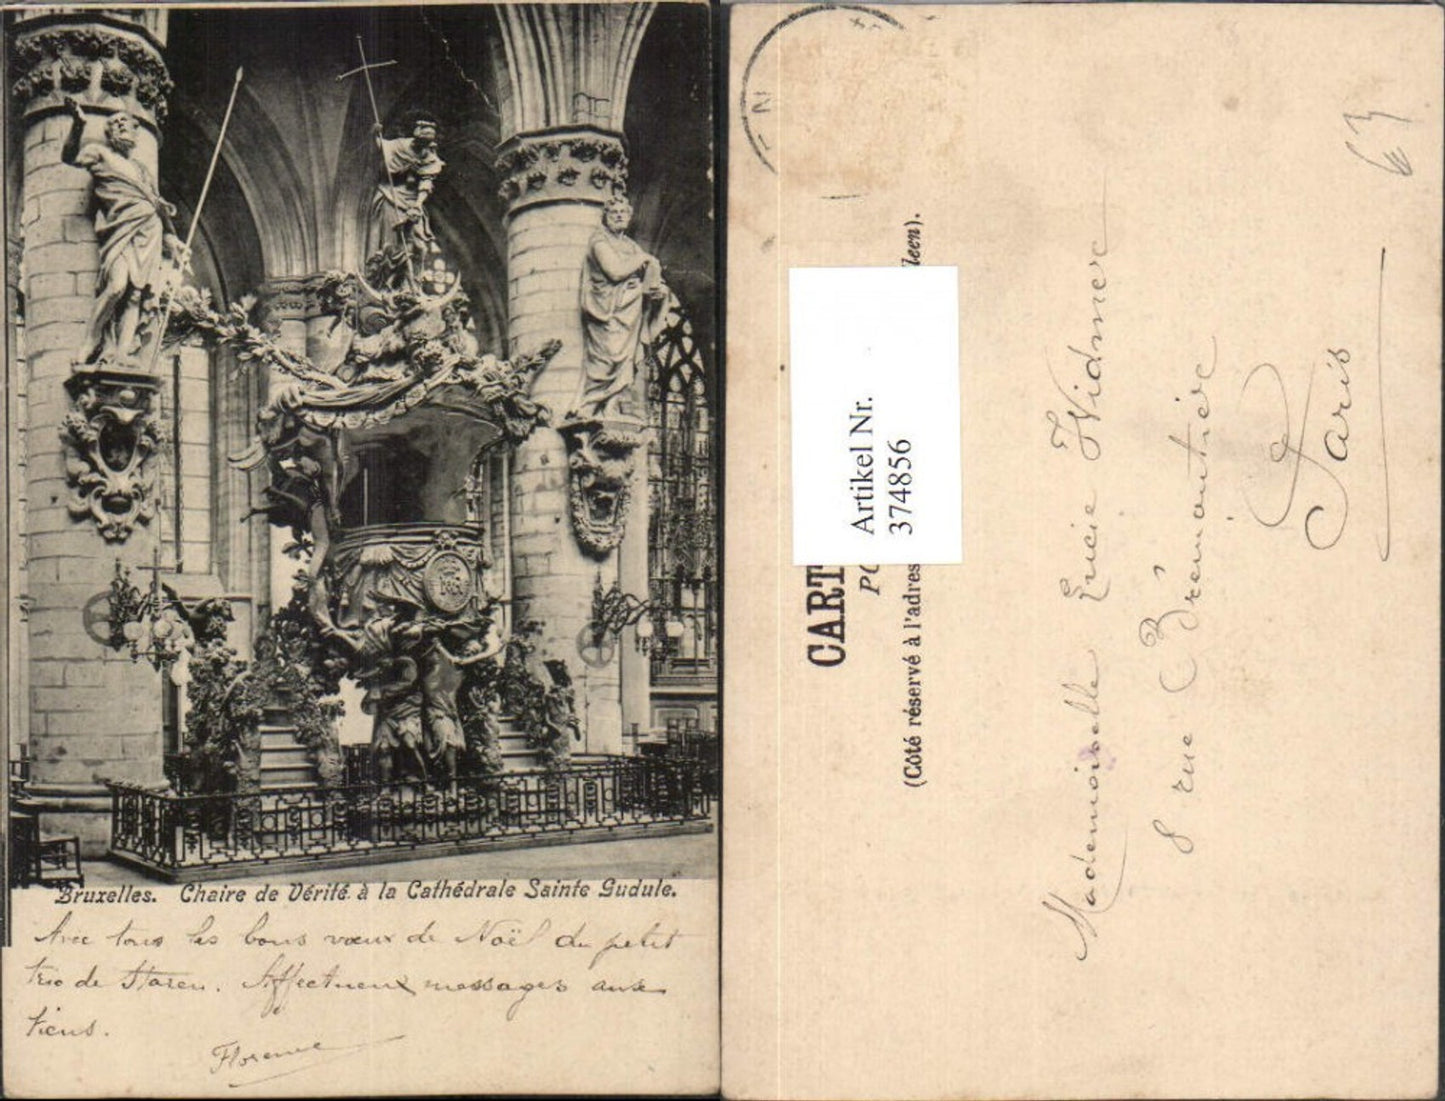 Bruxelles. Chaire de Vérité à la Cathédrale Sainte Gudule.
Avec tous les bons vœux de Noël du petit
trio de Haren. Affectueux messages aux
tiens.
Florence
CART
PO
(Côté réservé à l'adres
leen).
Artikel Nr.
374856
Mademoiselle Widmer
8 rue Prémontier
Paris
63
N